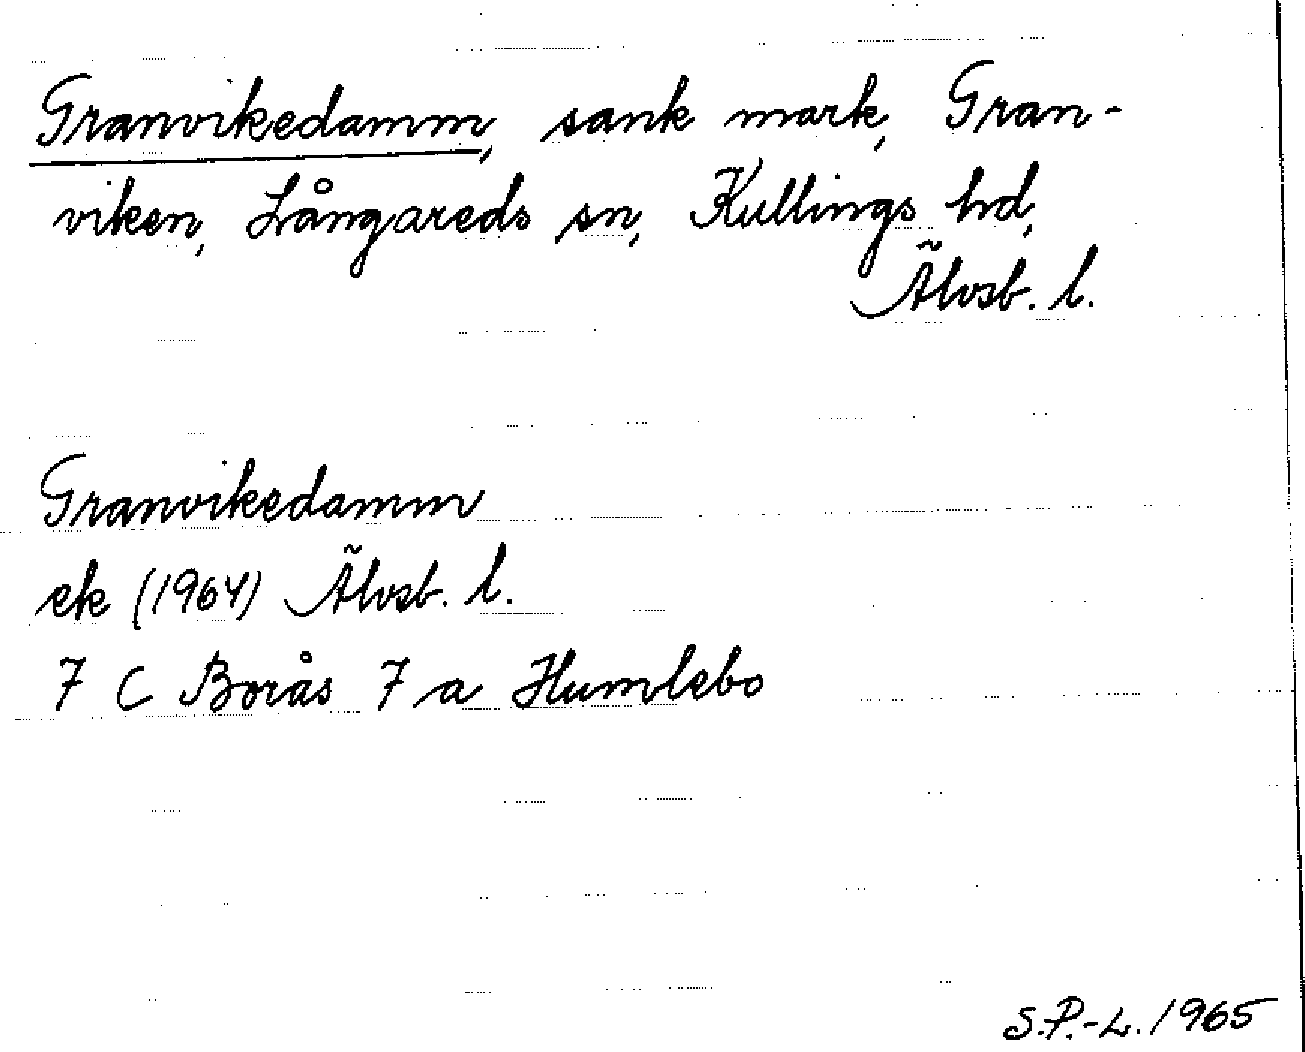 Granvikedamm, sank mark, Gran-
viken, Långareds sn, Kullings hd,
Älvsb. l.
Granvikedamm
ek (1964) Älvsb. l.
7 C Borås 7 a Humlebo
S.P.-L. 1965